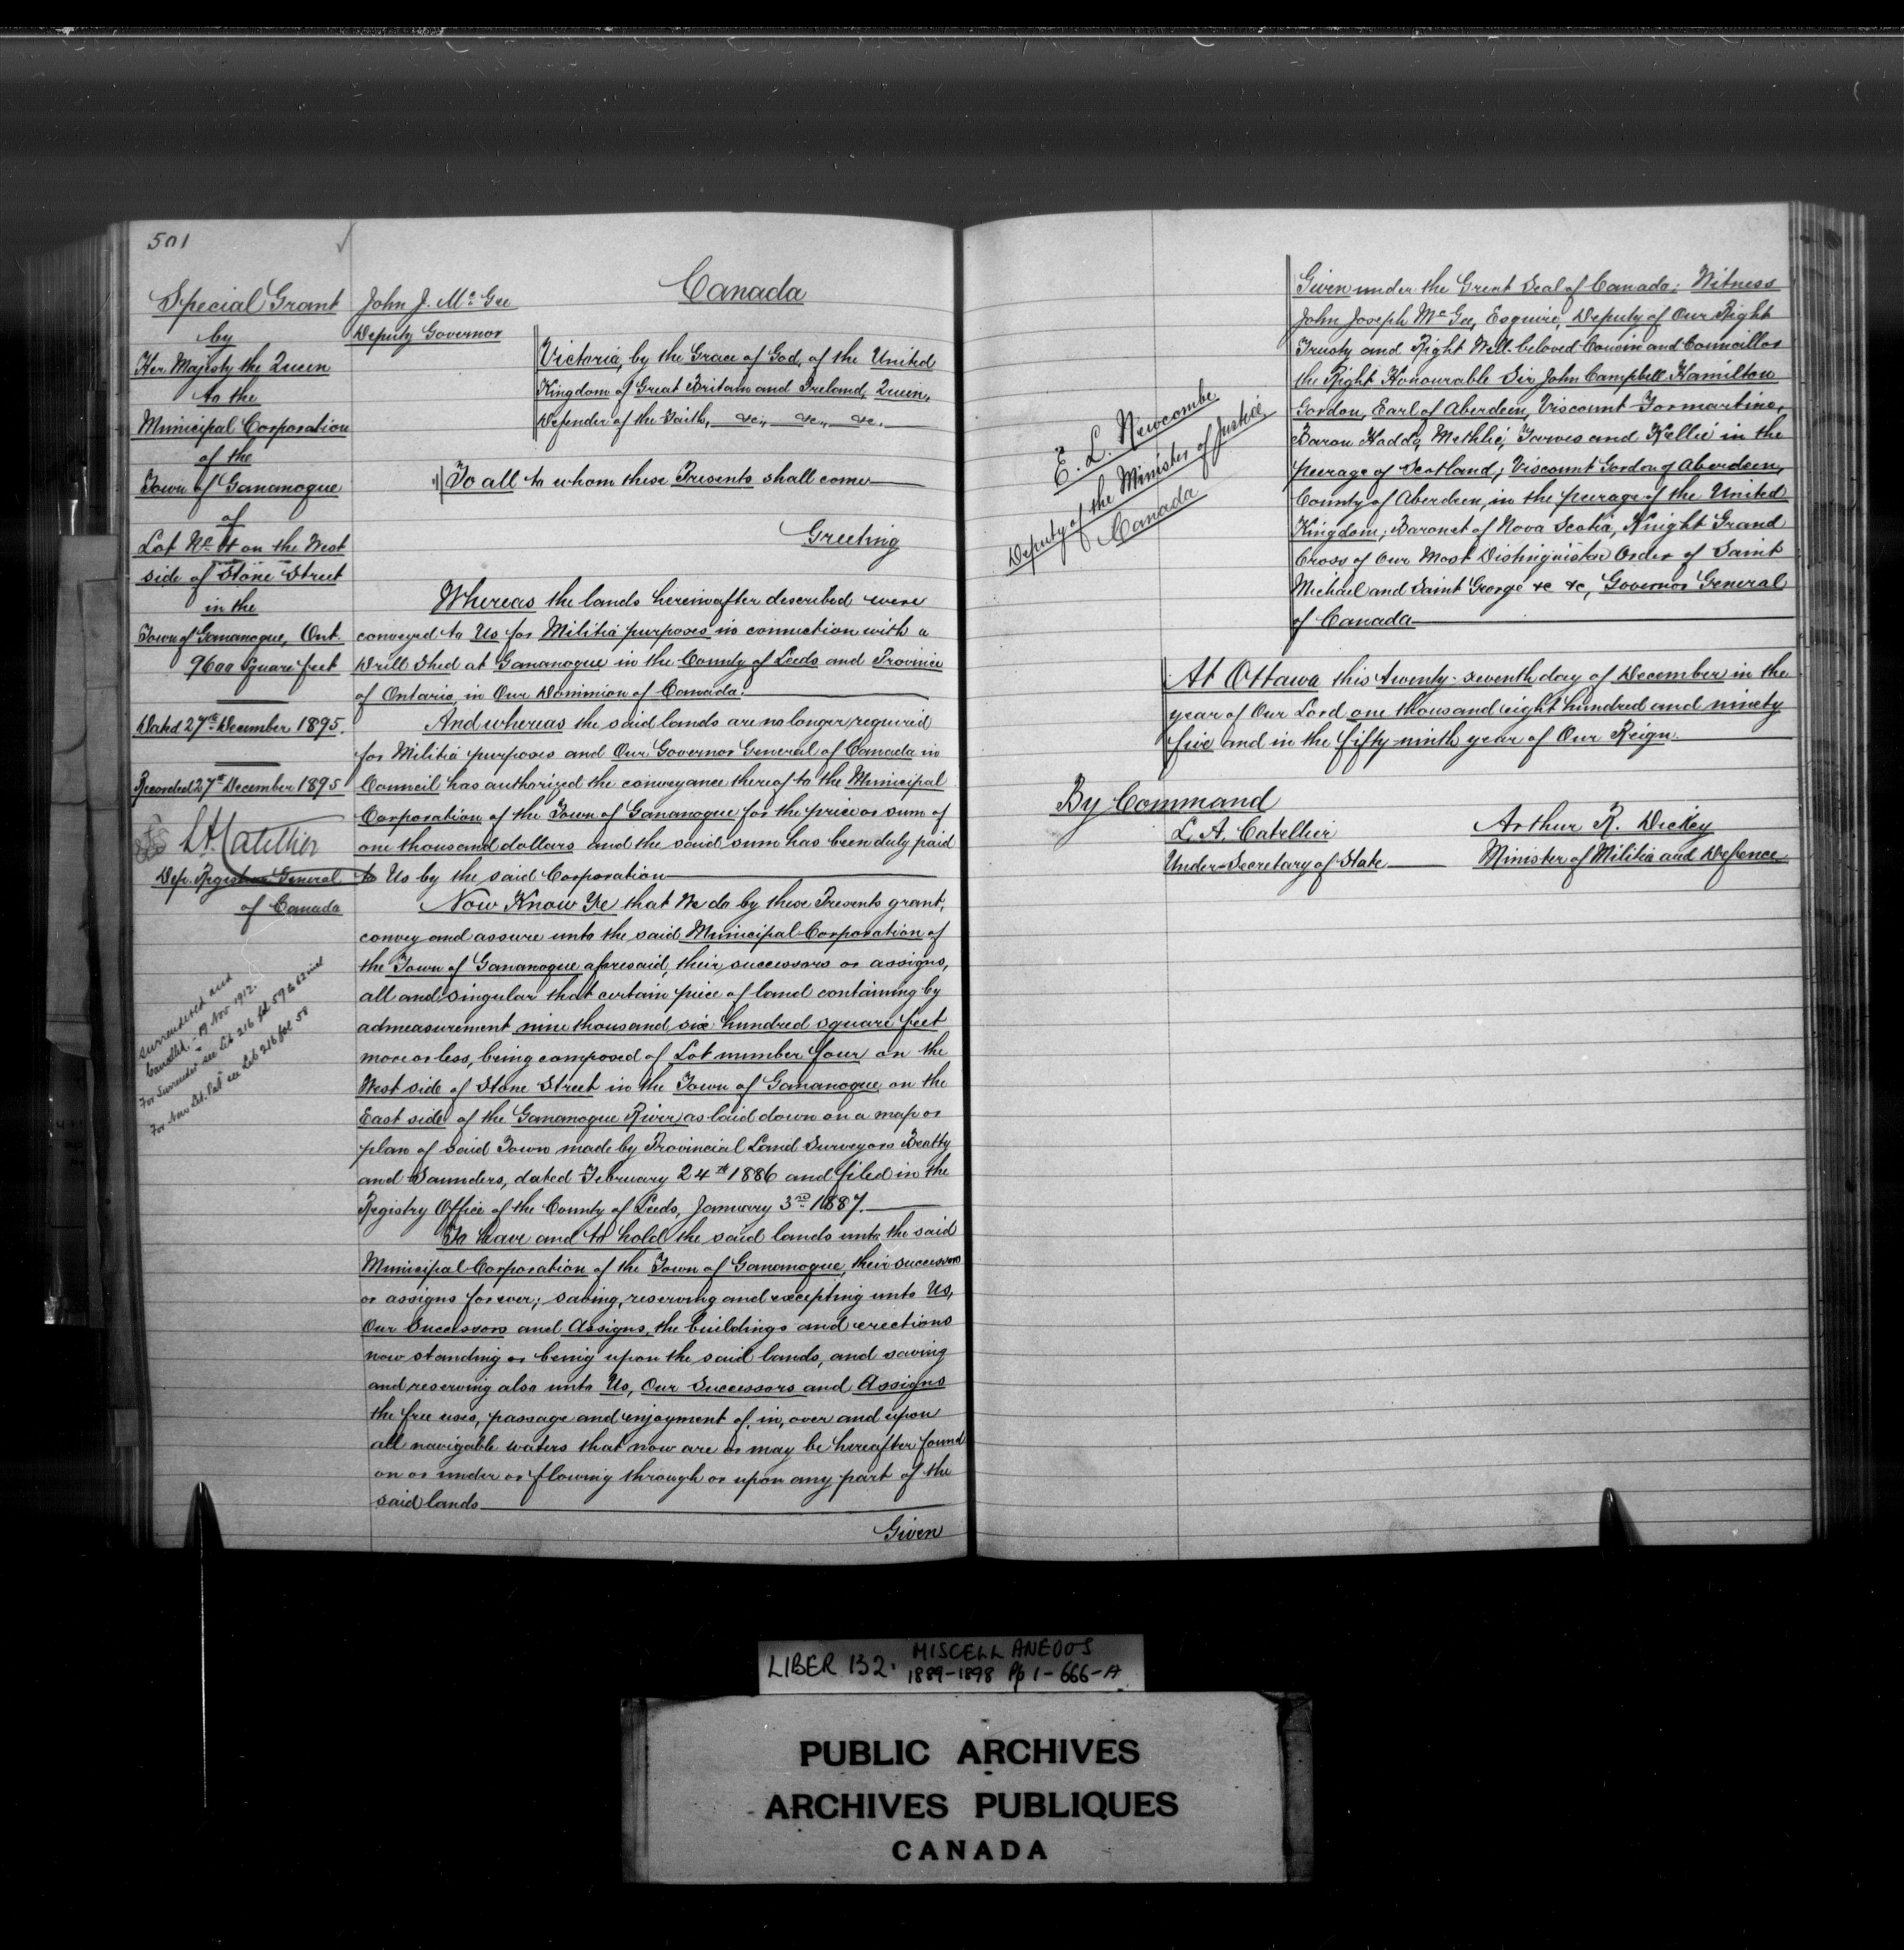 501
Special Grant
by
Her Majesty the Queen
to the
Municipal Corporation
of the
Town of Gananoque
of
Lot No 4 on the West
side of Stone Street
in the
Town of Gananoque, Ont.
9600 Square feet
Dated 27th December 1895.
Recorded 27th December 1895
L.A. Catellier
Dep. Registrar General
of Canada
Surrendered and
Cancelled. 19 Nov 1912.
For Surrender see Lib 216 fol 59 to 62 incl
For New Let. Pat. see Lib 216 fol 58
John J. McGee
Deputy Governor
Canada
Victoria, by the Grace of God, of the United
Kingdom of Great Britain and Ireland, Queen,
Defender of the Faith, &c., &c., &c.
To all to whom these Presents shall come
Greeting
Whereas the lands hereinafter described were
conveyed to Us for Militia purposes in connection with a
Drill Shed at Gananoque in the County of Leeds and Province
of Ontario, in Our Dominion of Canada.
And whereas the said lands are no longer required
for Militia purposes and Our Governor General of Canada in
Council has authorized the conveyance thereof to the Municipal
Corporation of the Town of Gananoque for the price or sum of
one thousand dollars and the said sum has been duly paid
to Us by the said Corporation
Now Know Ye that We do by these Presents grant,
convey and assure unto the said Municipal Corporation of
the Town of Gananoque aforesaid, their successors or assigns,
all and singular that certain piece of land containing by
admeasurement nine thousand six hundred square feet
more or less, being composed of Lot number four on the
West side of Stone Street in the Town of Gananoque, on the
East side of the Gananoque River, as laid down on a map or
plan of said Town made by Provincial Land Surveyors Beatty
and Saunders, dated February 24th 1886 and filed in the
Registry Office of the County of Leeds, January 3rd 1887.
To have and to hold the said lands unto the said
Municipal Corporation of the Town of Gananoque, their successors
or assigns forever; saving, reserving and excepting unto Us,
Our Successors and Assigns, the buildings and erections
now standing or being upon the said lands, and saving
and reserving also unto Us, Our Successors and Assigns
the free uses, passage and enjoyment of, in, over and upon
all navigable waters that now are or may be hereafter found
on or under or flowing through or upon any part of the
said lands
Given
E. L. Newcombe
Deputy of the Minister of Justice,
Canada
Given under the Great Seal of Canada: Witness
John Joseph McGee, Esquire, Deputy of Our Right
Trusty and Right Well-beloved Cousin and Councillor
the Right Honourable Sir John Campbell Hamilton
Gordon, Earl of Aberdeen, Viscount Formartine,
Baron Haddo, Methlic, Tarves and Kellie in the
peerage of Scotland; Viscount Gordon of Aberdeen,
County of Aberdeen, in the peerage of the United
Kingdom; Baronet of Nova Scotia, Knight Grand
Cross of Our Most Distinguished Order of Saint
Michael and Saint George &c &c, Governor General
of Canada
At Ottawa this twenty-seventh day of December in the
year of Our Lord one thousand eight hundred and ninety
five and in the fifty-ninth year of Our Reign.
By Command
L. A. Catellier
Under-Secretary of State
Arthur R. Dickey
Minister of Militia and Defence
LIBER 132. MISCELLANEOUS
1889-1898 Pp 1-666-A
PUBLIC ARCHIVES
ARCHIVES PUBLIQUES
CANADA